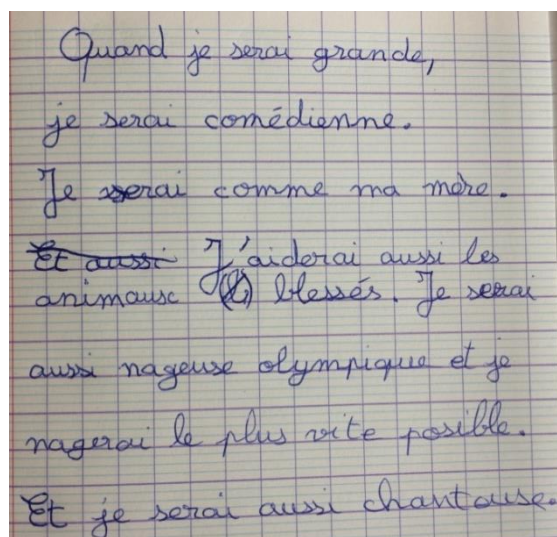 Quand je serai grande,
je serai comédienne.
Je serai comme ma mère.
Et aussi J'aiderai aussi les
animaux blessés. Je serai
aussi nageuse olympique et je
nagerai le plus vite posible.
Et je serai aussi chanteuse.